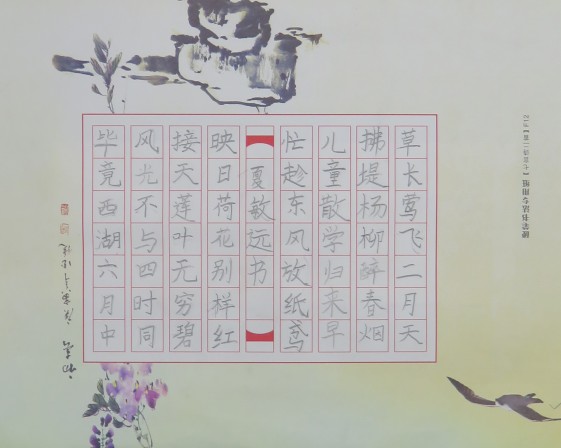 草长莺飞二月天
拂堤杨柳醉春烟
儿童散学归来早
忙趁东风放纸鸢
夏敏远书
毕竟西湖六月中
风光不与四时同
接天莲叶无穷碧
映日荷花别样红
硬笔书法专用纸